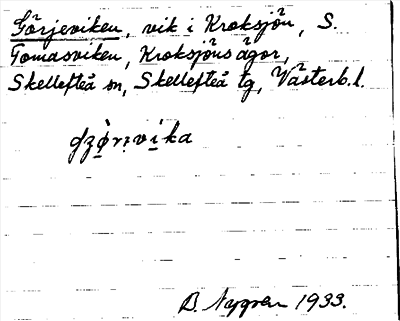 Görjeviken, vik i Kroksjön, S.
Tomasviken, Kroksjöns ägor,
Skellefteå sn, Skellefteå tg, Västerb. l.
B. Nygren 1933.